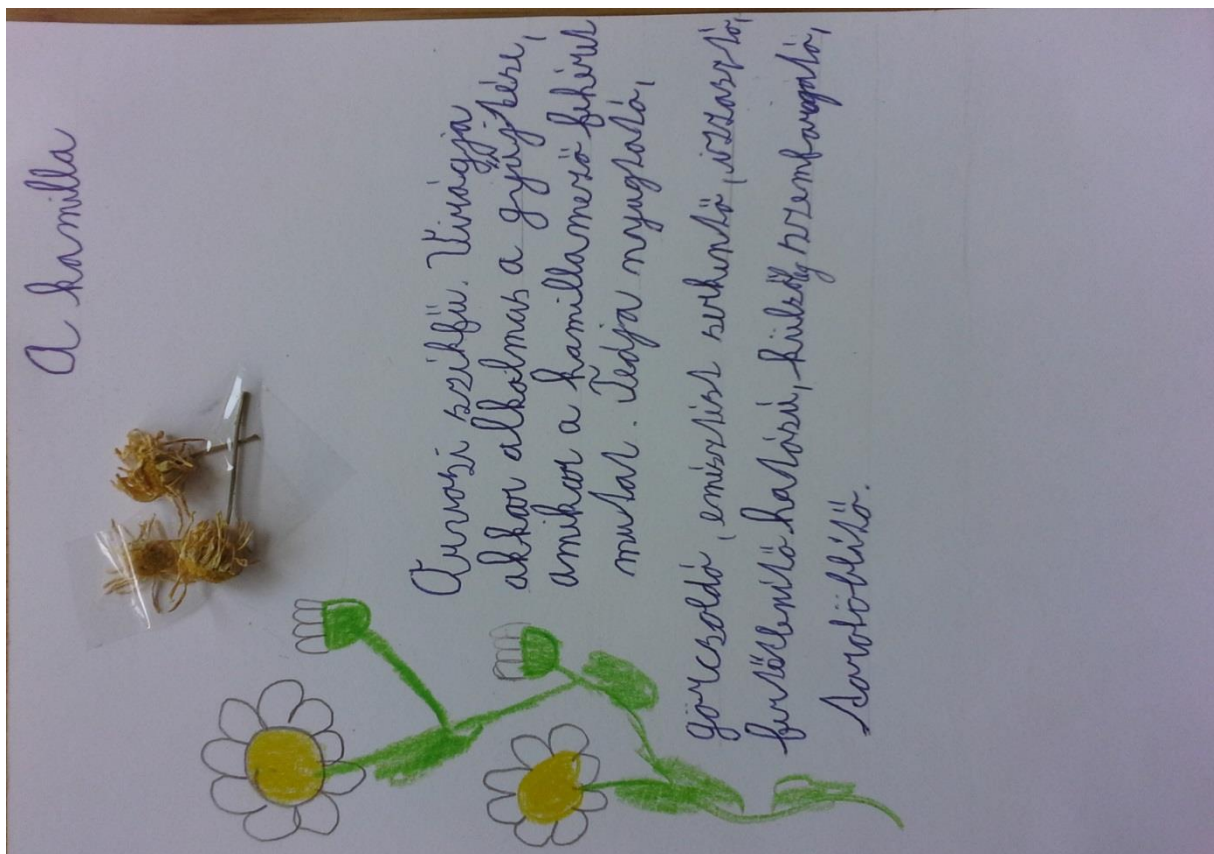 A kamilla
Orvosi székfű. Virágja
akkor alkalmas a gyűjtésre,
amikor a kamillamező fehéret
mutat. Teája nyugtató,
görcsoldó, emésztést serkentő, izzasztó,
fertőtlenítő hatású, külsőleg szemborogató,
toroköblítő.